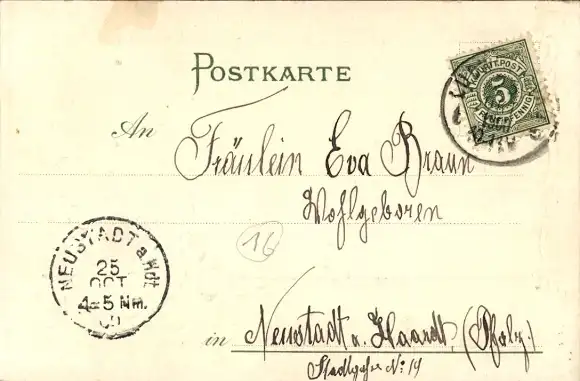 POSTKARTE
K. WÜRTT. POST
5
FÜNF PFENNIG
An
Fräulein Eva Braun
Wohlgeboren
16
NEUSTADT a. Hdt
25
OCT
4-5 Nm.
in Neustadt a. Haardt, (Pfalz.)
No 19